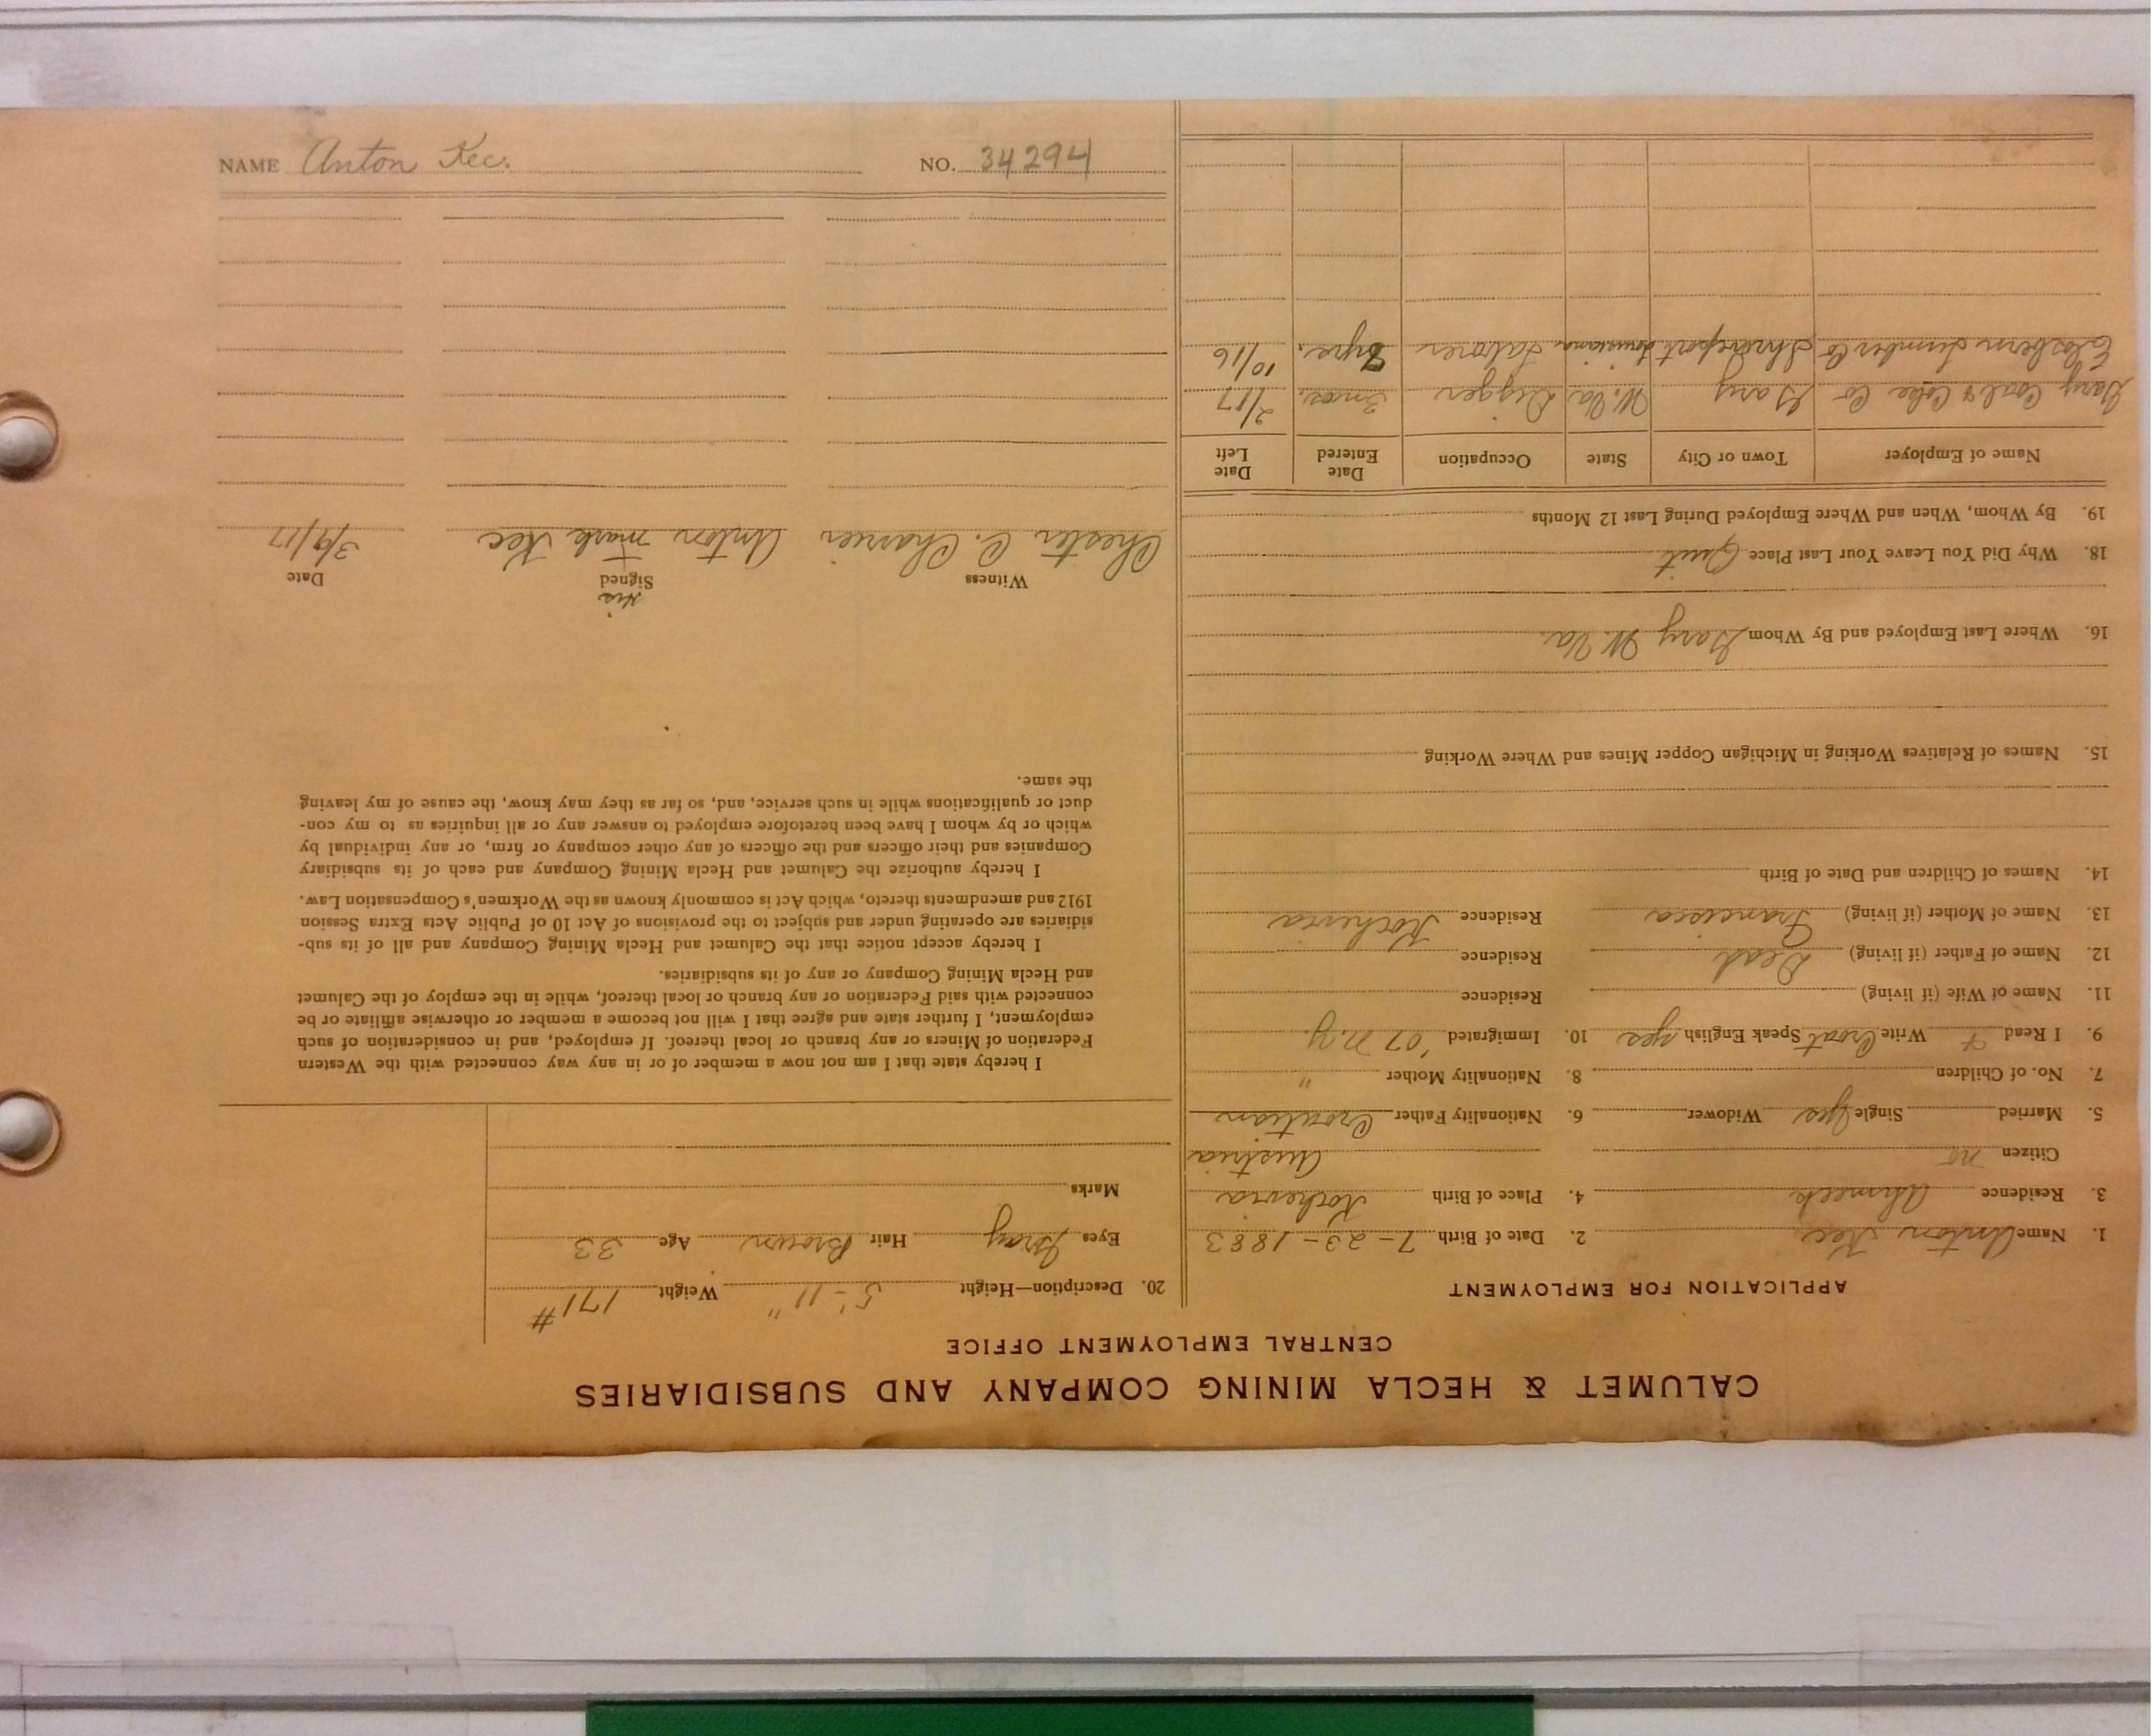 CALUMET & HECLA MINING COMPANY AND SUBSIDIARIES
CENTRAL EMPLOYMENT OFFICE
APPLICATION FOR EMPLOYMENT
1. Name Anton Kec 2. Date of Birth 7-23-1883
3. Residence Ahmeek 4. Place of Birth Kochevia
Citizen no Austria
5. Married Single Yes Widower 6. Nationality Father Croatian
7. No. of Children 8. Nationality Mother "
9. I Read + Write Croat Speak English yes 10. Immigrated '07 N.Y.
11. Name of Wife (if living) Residence
12. Name of Father (if living) Dead Residence
13. Name of Mother (if living) Francisca Residence Kochevia
14. Names of Children and Date of Birth
15. Names of Relatives Working in Michigan Copper Mines and Where Working
16. Where Last Employed and By Whom Gary W. Va.
18. Why Did You Leave Your Last Place Quit
19. By Whom, When and Where Employed During Last 12 Months
Name of Employer Town or City State Occupation Date Entered Date Left
Gary Coal & Coke Co Gary W. Va Digger 3 mos. 2/17
Lumber Co Shreveport Louisiana Laborer 7 yrs. 10/16
20. Description—Height 5'-11" Weight 171#
Eyes Gray Hair Brown Age 33
Marks
I hereby state that I am not now a member of or in any way connected with the Western
Federation of Miners or any branch or local thereof. If employed, and in consideration of such
employment, I further state and agree that I will not become a member or otherwise affiliate or be
connected with said Federation or any branch or local thereof, while in the employ of the Calumet
and Hecla Mining Company or any of its subsidiaries.
I hereby accept notice that the Calumet and Hecla Mining Company and all of its sub-
sidiaries are operating under and subject to the provisions of Act 10 of Public Acts Extra Session
1912 and amendments thereto, which Act is commonly known as the Workmen's Compensation Law.
I hereby authorize the Calumet and Hecla Mining Company and each of its subsidiary
Companies and their officers and the officers of any other company or firm, or any individual by
which or by whom I have been heretofore employed to answer any or all inquiries as to my con-
duct or qualifications while in such service, and, so far as they may know, the cause of my leaving
the same.
Witness Signed Date
his
Chester C. Charrier Anton mark Kec 3/9/17
NAME Anton Kec. NO. 34294